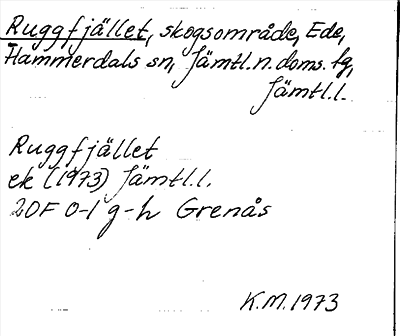 Ruggfjället, skogsområde, Ede,
Hammerdals sn, Jämtl.n.doms. lg,
Jämtl.l.
Ruggfjället
ek (1973) Jämtl.l.
20F 0-1 g-h Grenås
K.M.1973